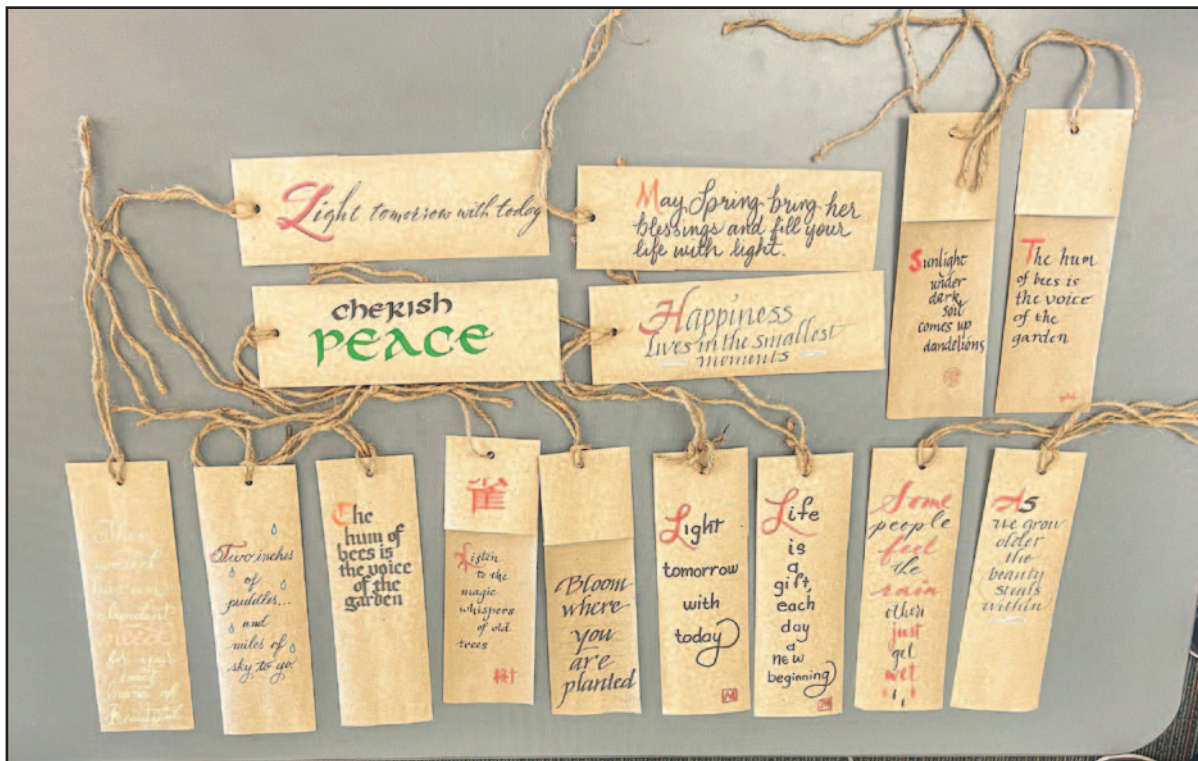 Light tomorrow with today
May Spring bring her
blessings and fill your
life with light.
cherish
PEACE
Happiness
lives in the smallest
moments
Sunlight
under
dark
soil
comes up
dandelions
The hum
of bees is
the voice
of the
garden
This
world
has an
abundant
need
for your
exact
brand of
Beautiful
Two inches
of
puddles...
and
miles of
sky to go
The
hum of
bees is
the voice
of the
garden
雀
Listen
to the
magic
whispers
of old
trees
樹
Bloom
where
you
are
planted
Light
tomorrow
with
today
M
Life
is
a
gift,
each
day
a
new
beginning
M
Some
people
feel
the
rain
others
just
get
wet
As
we grow
older
the
beauty
steals
within